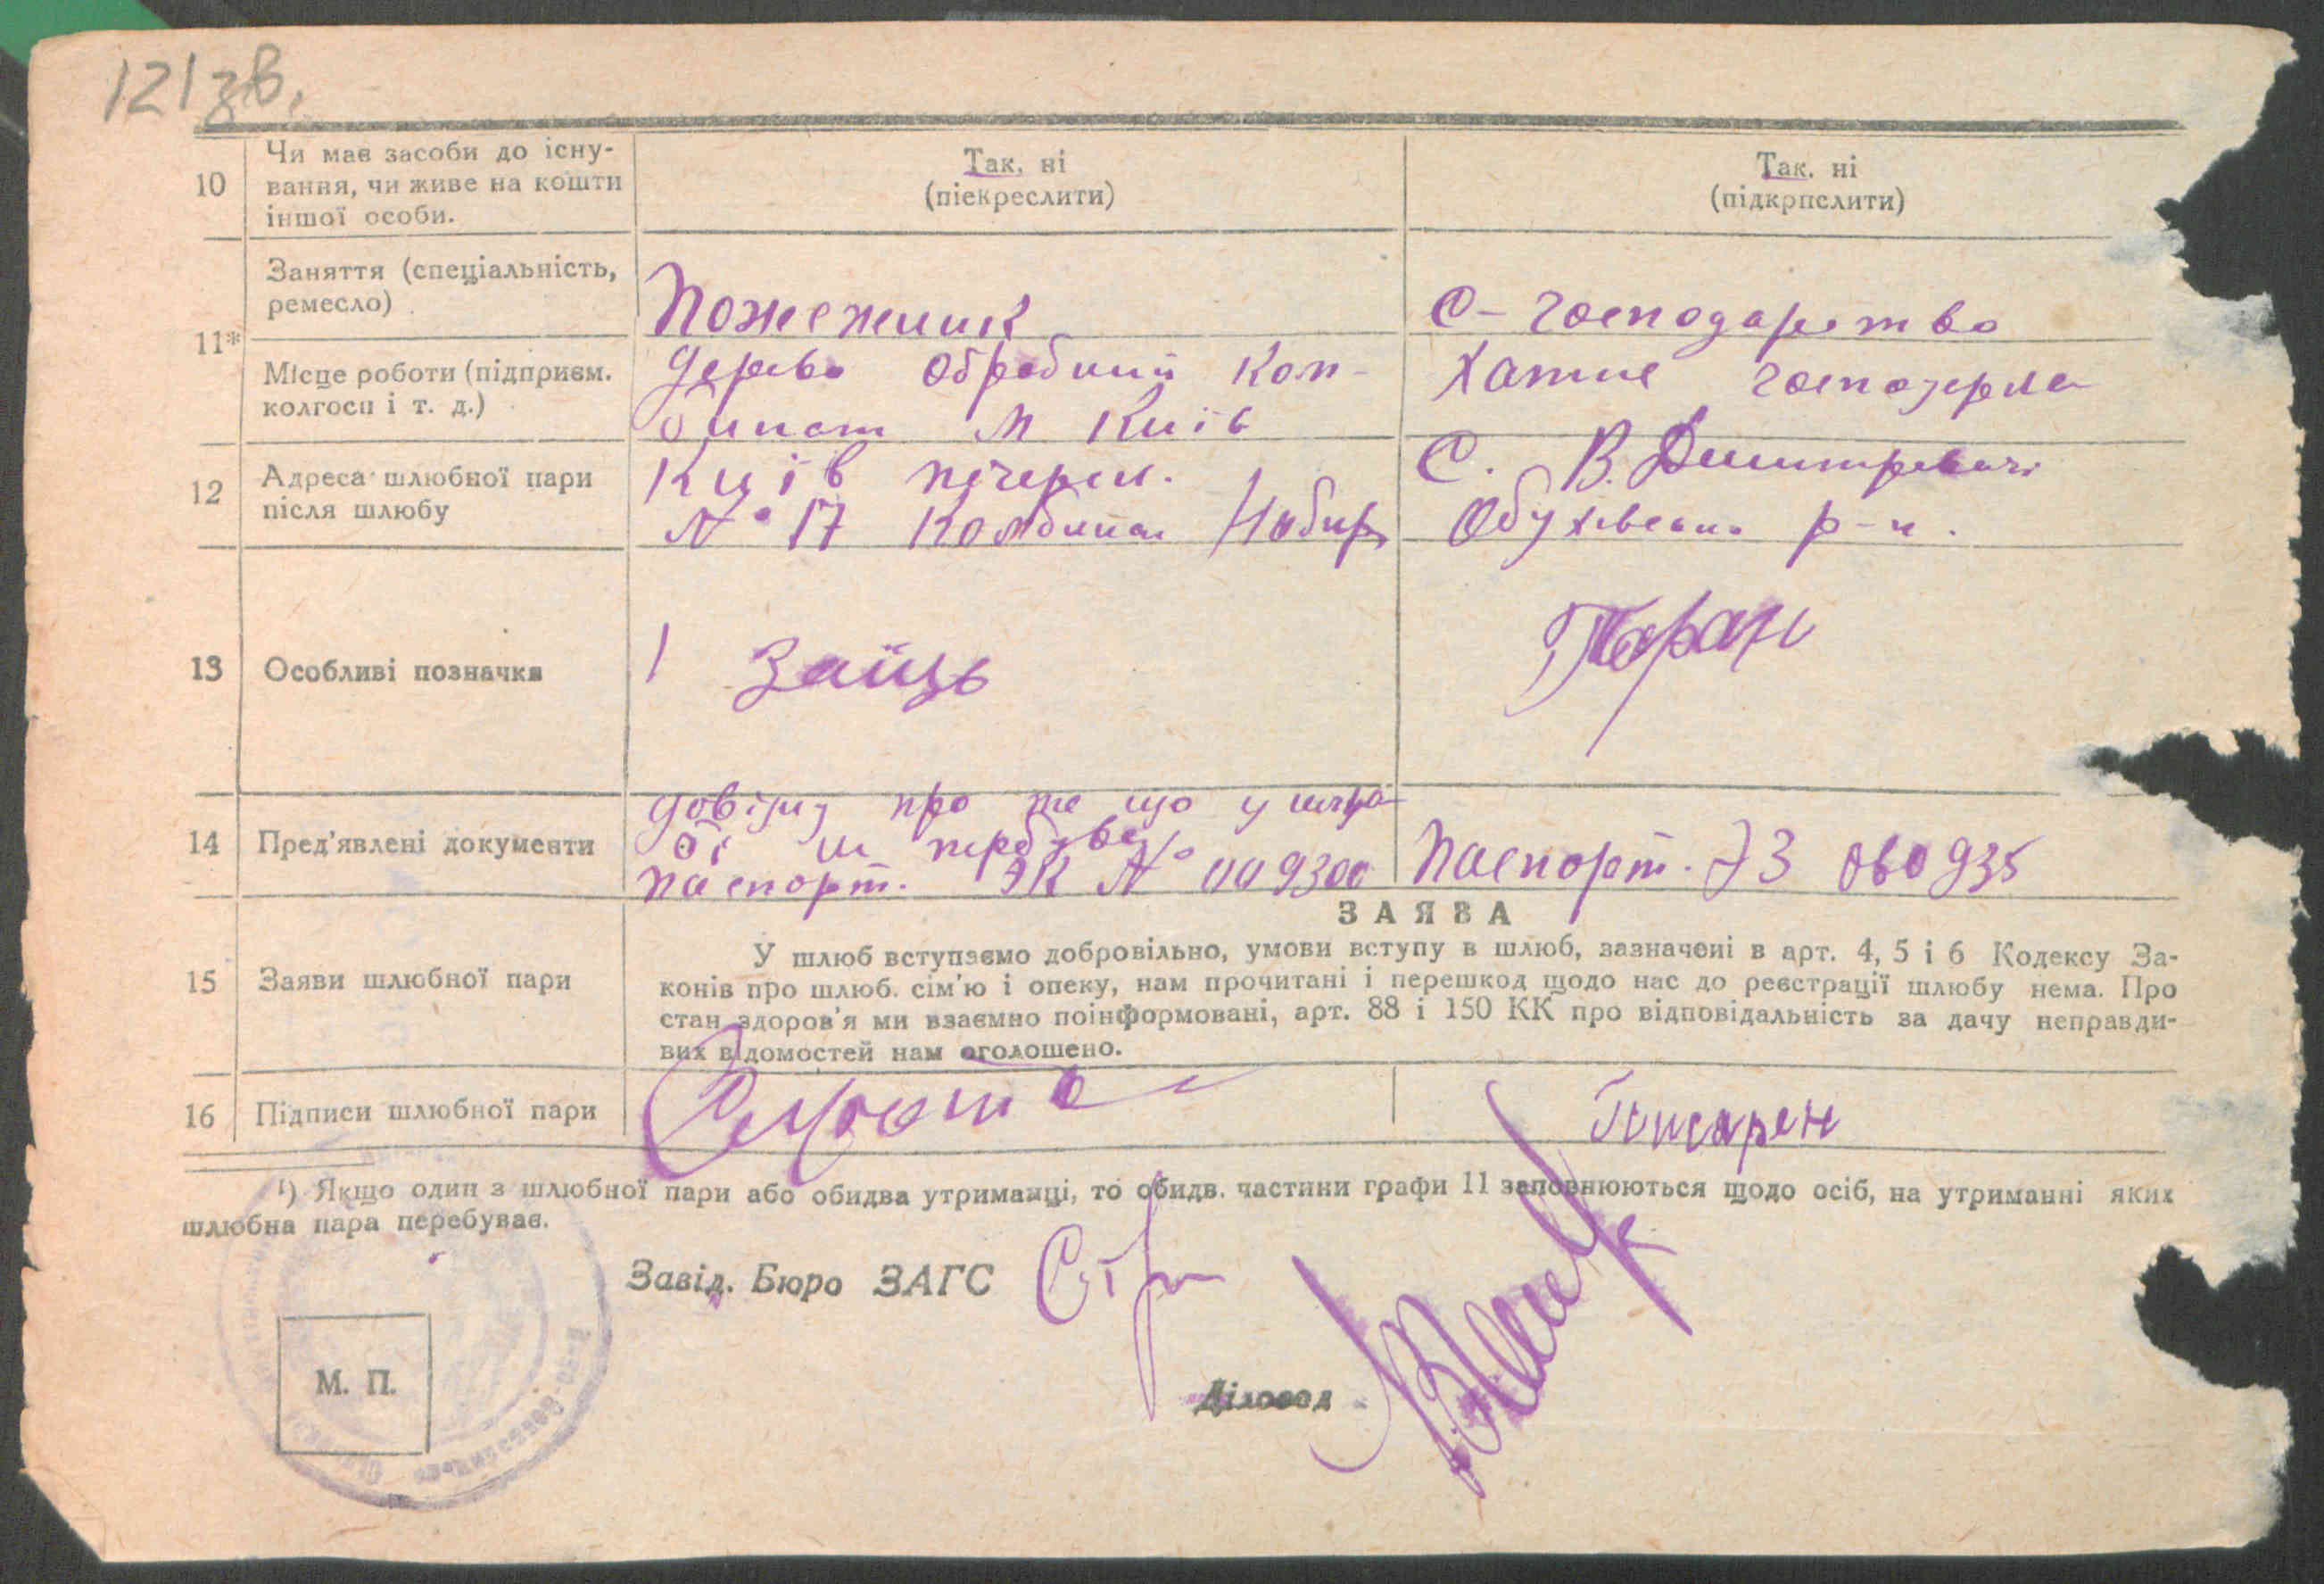 121 зв.
10
Чи має засоби до існу-
вання, чи живе на кошти
іншої особи.
Так, ні
(піекреслити)
Так. ні
(підкрпслити)
11*
Заняття (спеціальність,
ремесло)
Пожежник
С-господарство
Місце роботи (підприєм.
колгосп і т. д.)
Дерево обробний ком-
бинат м Київ
Хатне
12
Адреса шлюбної пари
після шлюбу
Київ печерск.
№ 17 Комбинат
С. В. Дмитровичі
Обухівськ. р-н.
13
Особливі позначки
Заїць
Таран
14
Пред'явлені документи
про те що у шлю-
бі не перебував
паспорт. ЭК № 009300
Паспорт. 060935
15
Заяви шлюбної пари
ЗАЯВА
У шлюб вступаємо добровільно, умови вступу в шлюб, зазначені в арт. 4, 5 і 6 Кодексу За-
конів про шлюб. сім'ю і опеку, нам прочитані і перешкод щодо нас до реєстрації шлюбу нема. Про
стан здоров'я ми взаємно поінформовані, арт. 88 і 150 КК про відповідальність за дачу неправди-
вих відомостей нам оголошено.
16
Підписи шлюбної пари
Писарен
¹) Якщо один з шлюбної пари або обидва утриманці, то обидв. частини графи 11 заповнюються щодо осіб, на утриманні яких
шлюбна пара перебуває.
Завід. Бюро ЗАГС
М. П.
Діловод